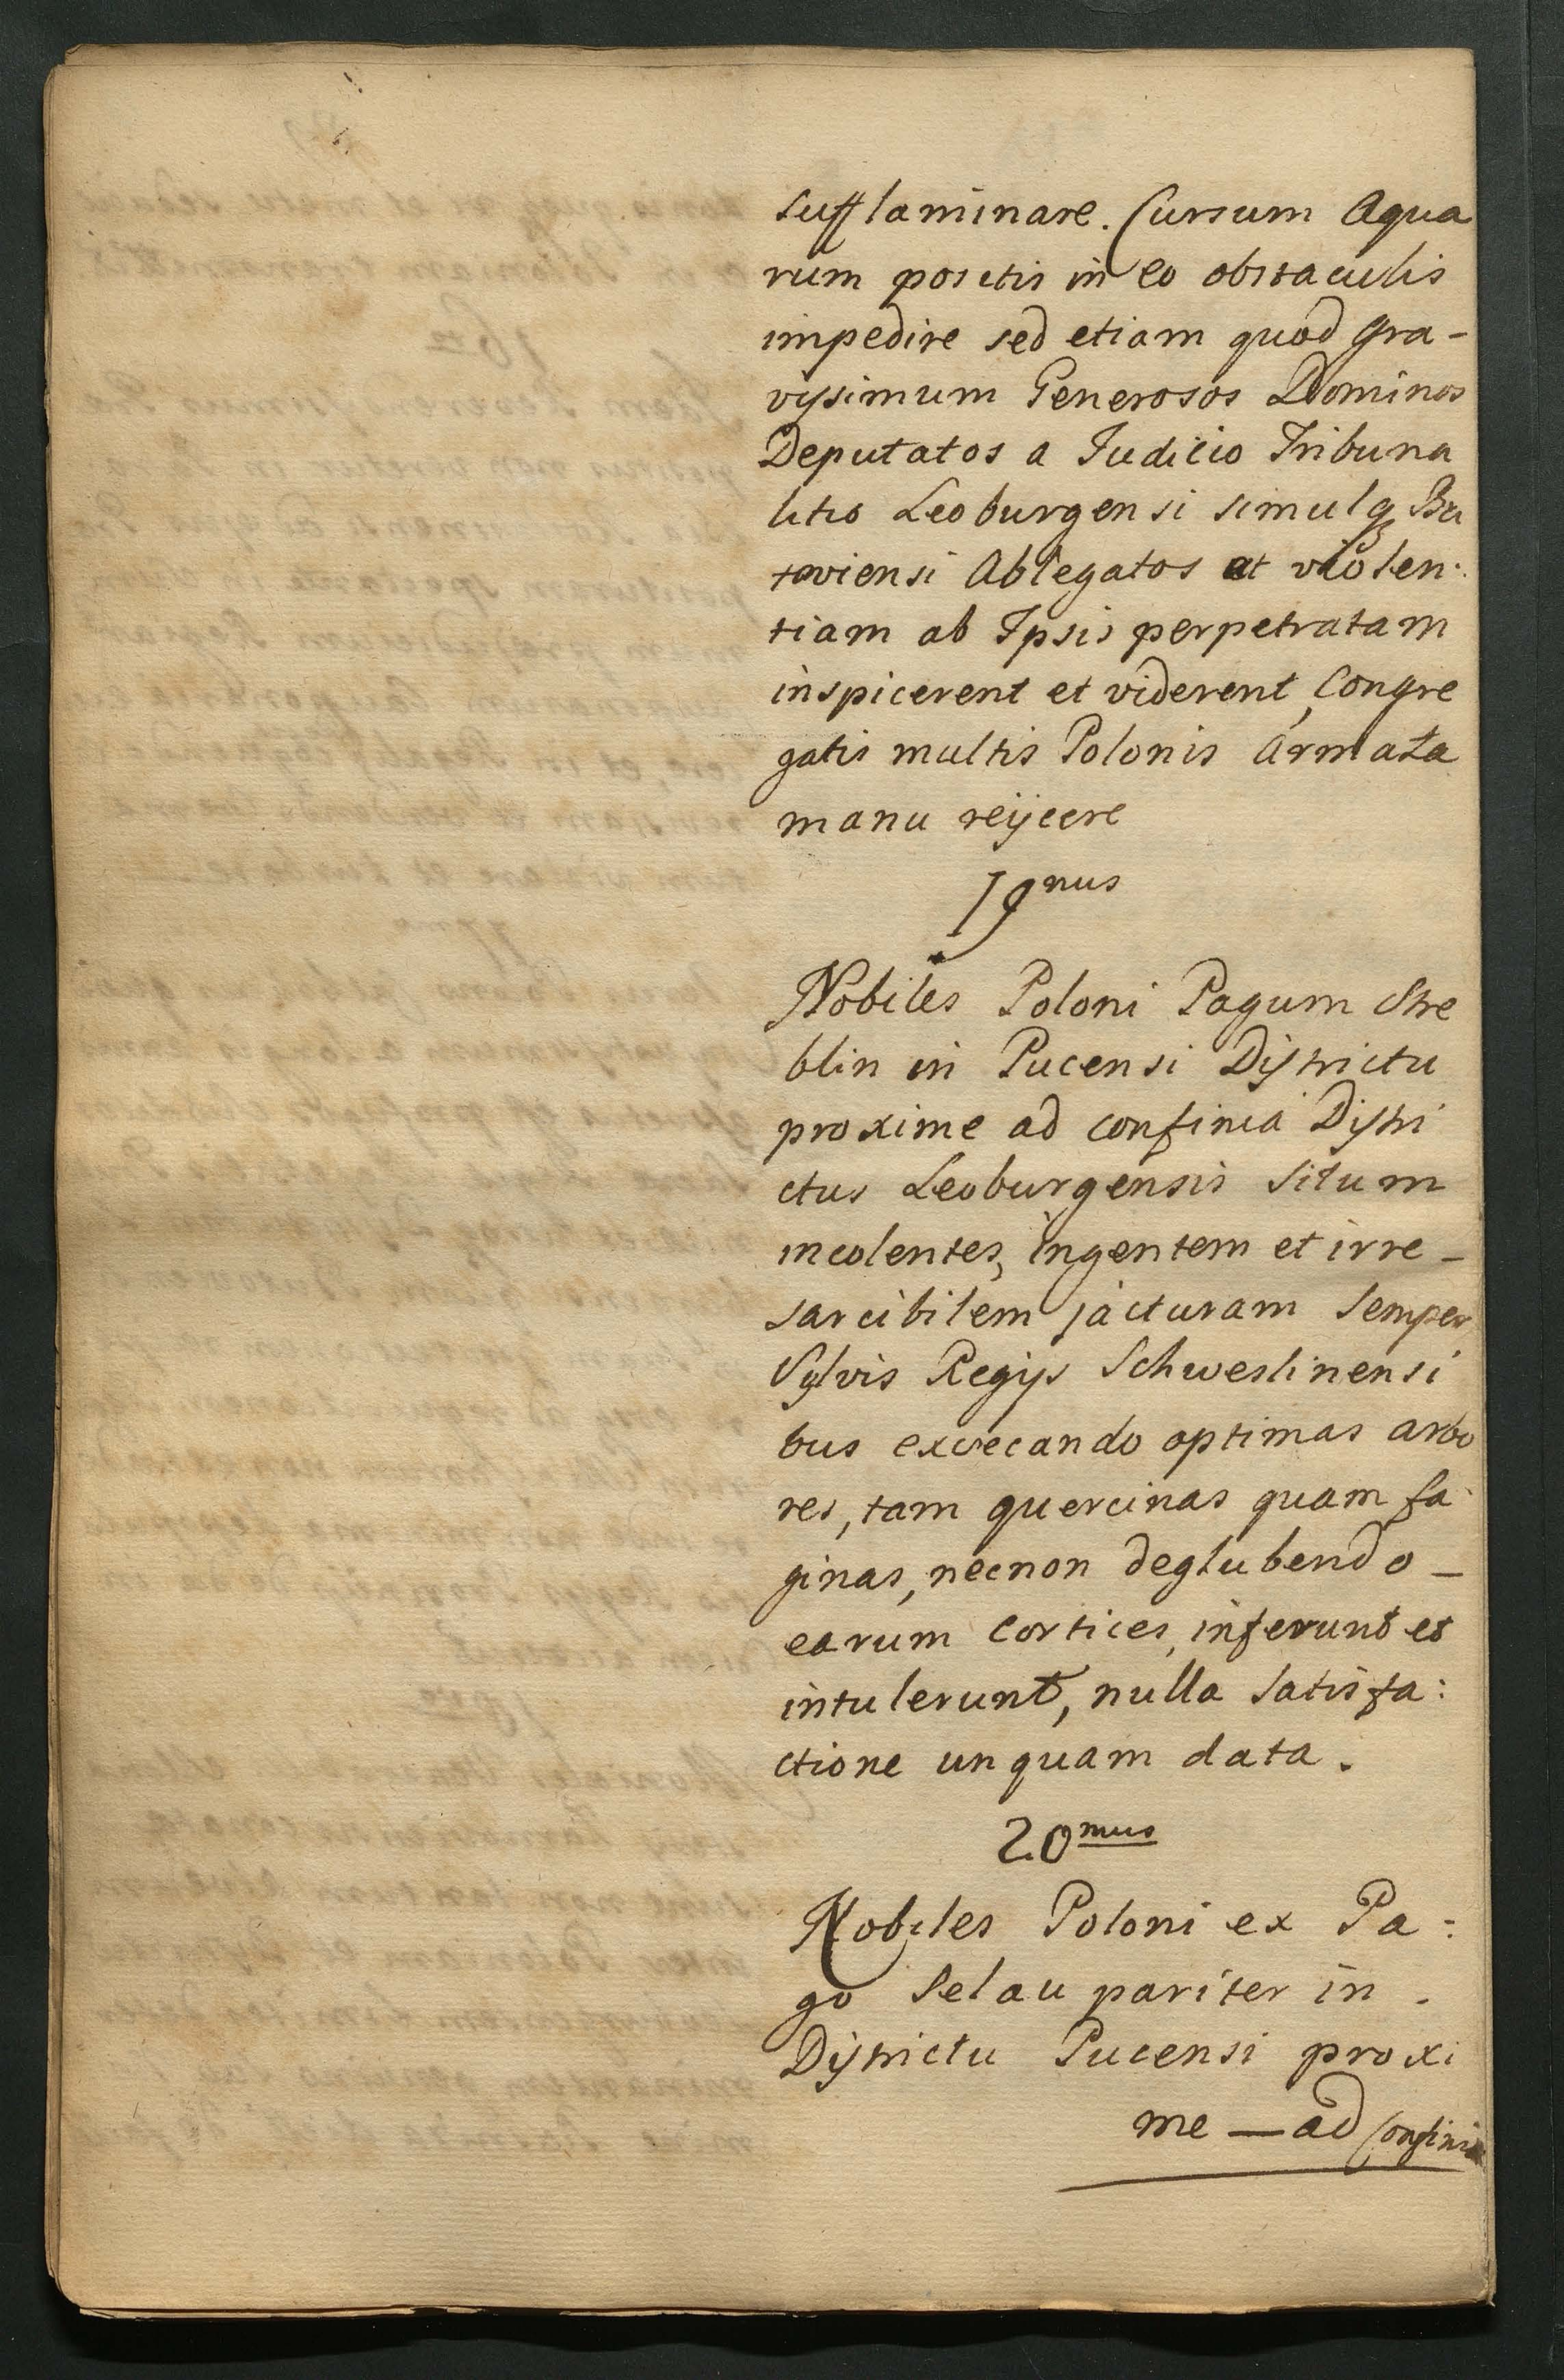 sufflaminare. Cursum Aqua
rum positis in eo obstaculis
impedire sed etiam quod gra-
vissimum Generosos Dominos
Deputatos a Judicio Tribuna
litio Leoburgensi simulq Bu
toviensi Ablegatos ut violen:
tiam ab Ipsis perpetratam
inspicerent et viderent, Congre
gatis multis Polonis armata
manu reijcere
19nus
Nobiles Poloni Pagum Stre
blin in Pucensi Districtu
proxime ad confinia Distri
ctus Leoburgensis situm
incolentes, ingentem et irre-
sarcibilem jacturam semper
Sylvis Regijs Schweslinensi
bus exsecando optimas arbo
res, tam quercinas quam fa
ginas, necnon deglubendo -
earum cortices, inferunt et
intulerunt, nulla satisfa:
ctione unquam data.
20mus
Nobiles Poloni ex Pa:
go Selau pariter in .
Districtu Pucensi proxi
me — ad confinia